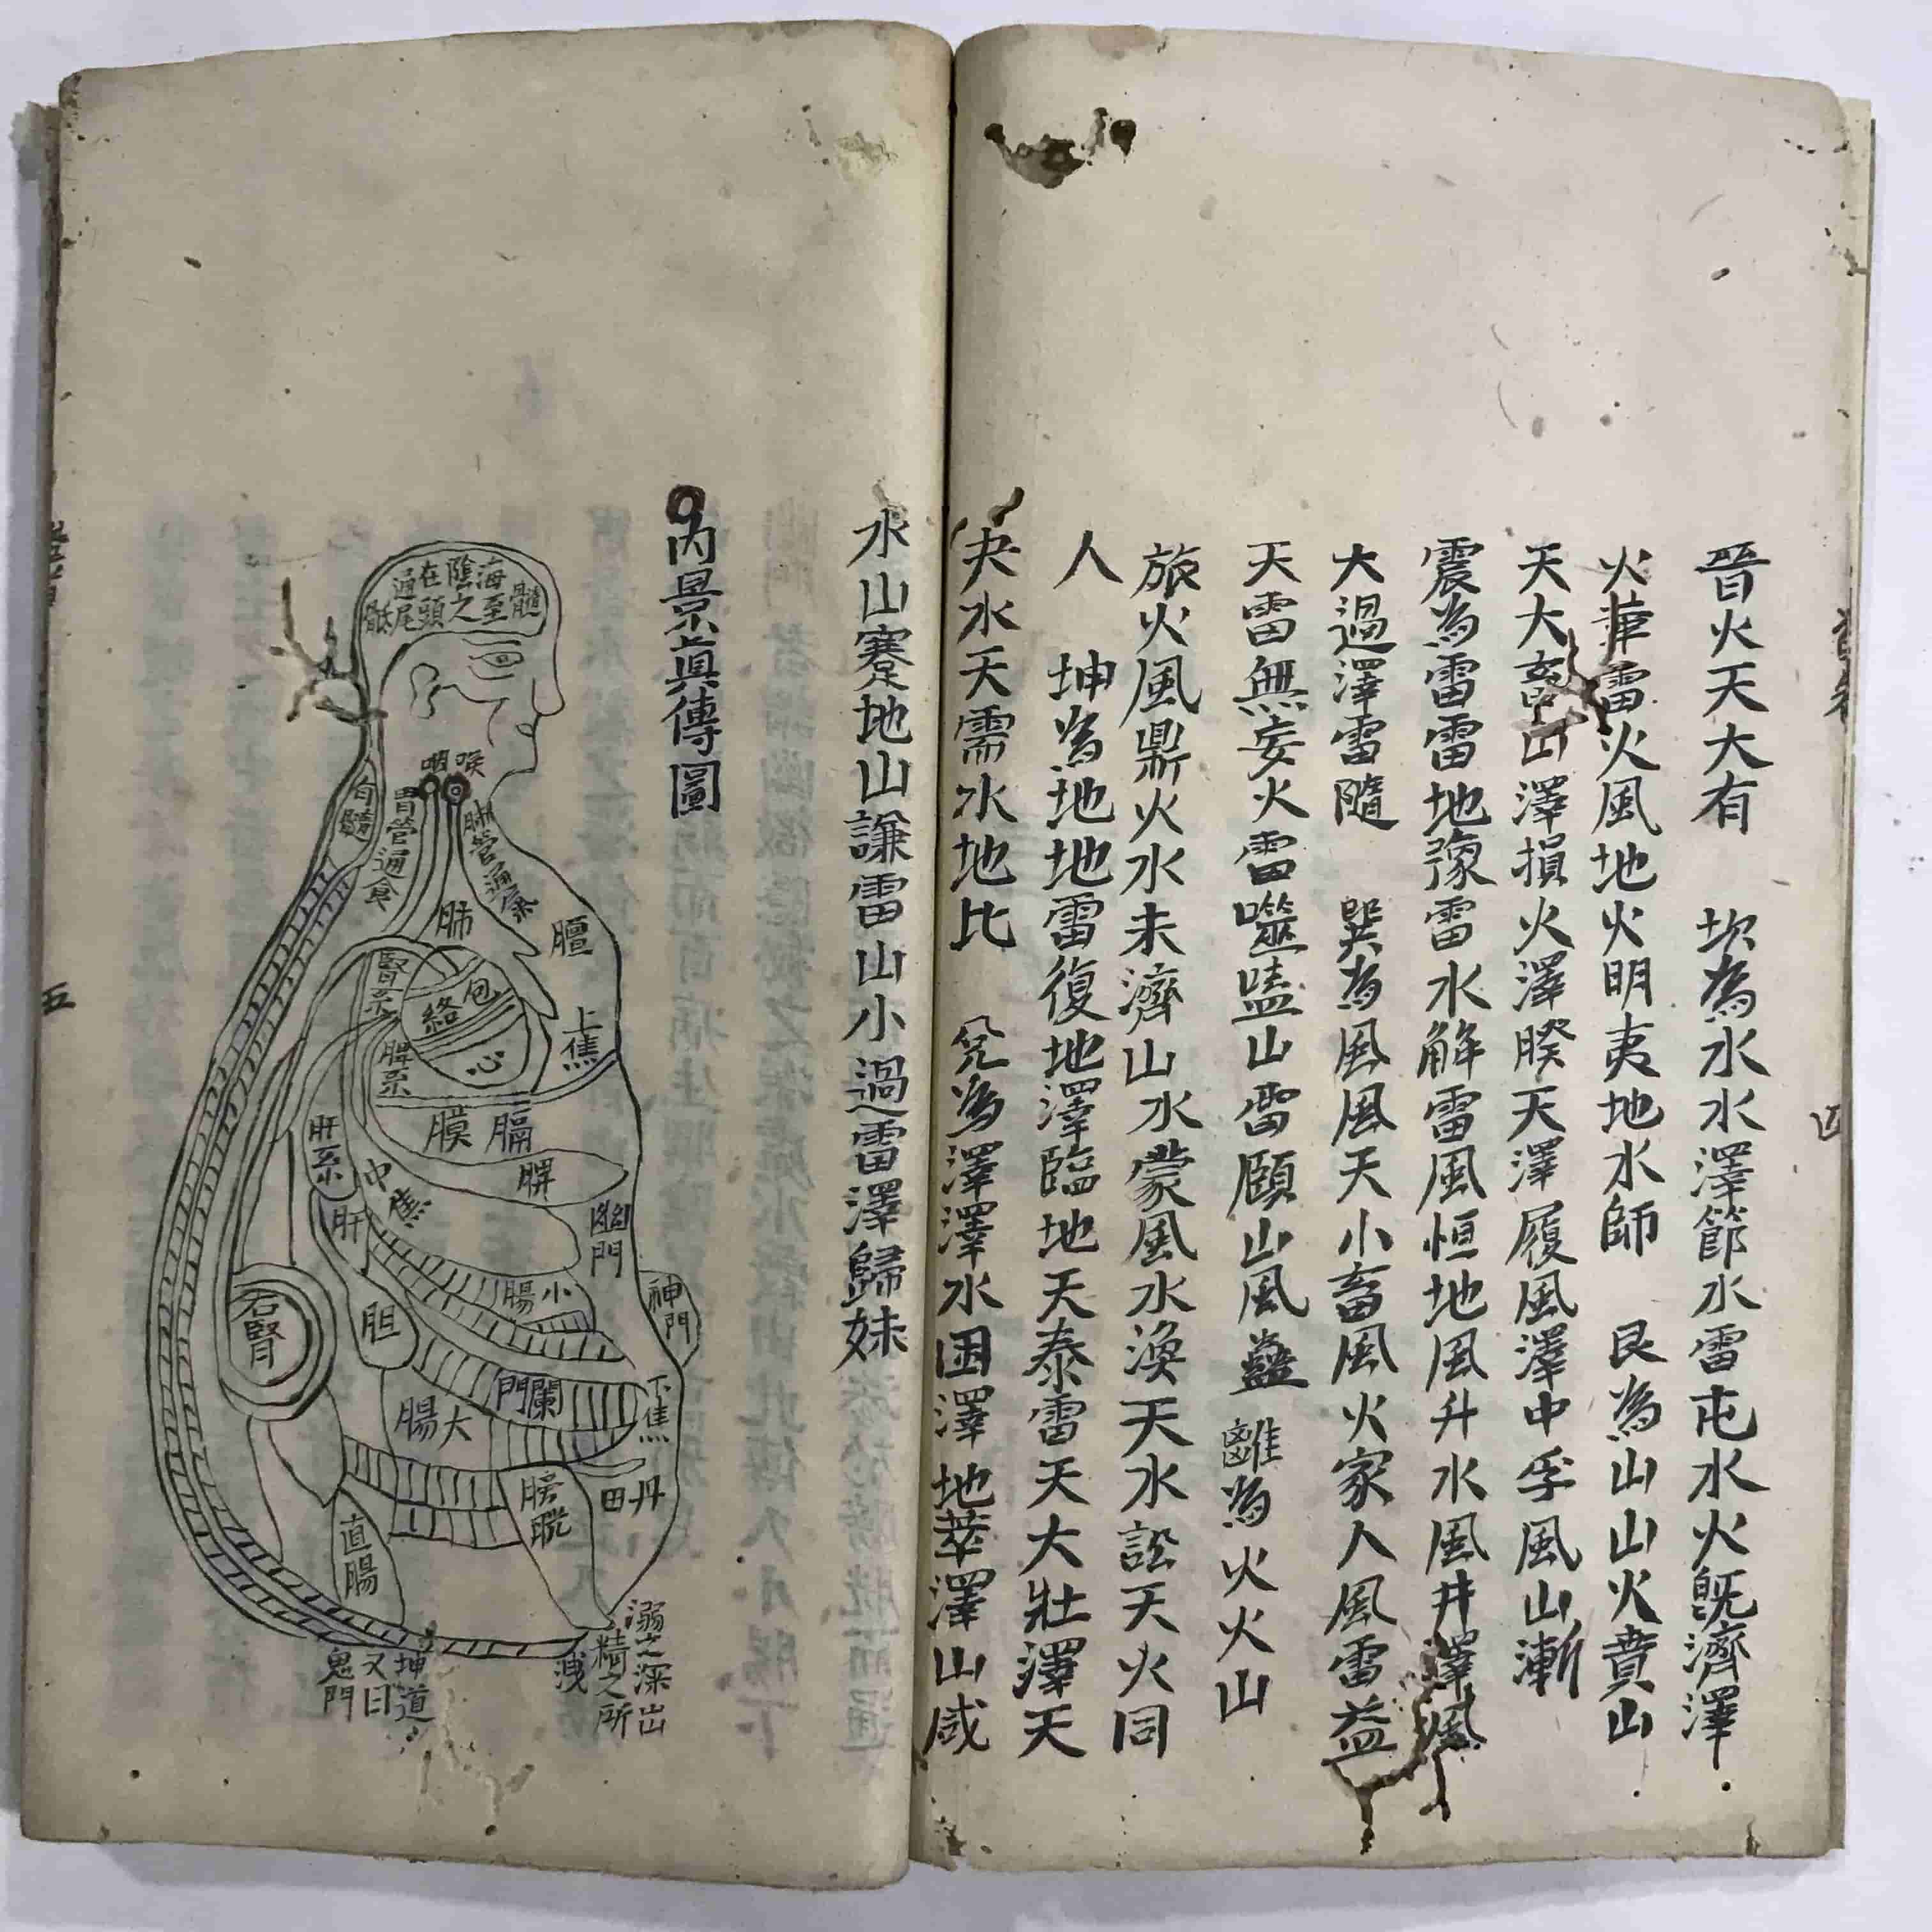 晉火天大有　坎為水水澤節水雷屯水火既濟澤
火革雷火風地火明夷地水師　艮為山山火賁山
天大畜山澤損火澤睽天澤履風澤中孚風山漸
震為雷雷地豫雷水解雷風恒地風升水風井澤風
大過澤雷隨　巽為風風天小畜風火家人風雷益
天雷無妄火雷噬嗑山雷頤山風蠱　離為火火山
旅火風鼎火水未濟山水蒙風水渙天水訟天火同
人　坤為地地雷復地澤臨地天泰雷天大壯澤天
夬水天需水地比　兌為澤澤水困澤地萃澤山咸
水山蹇地山謙雷山小過雷澤歸妹
內景真傳圖
髓
海至
陰之
在頭
通尾
骶
咽喉
胃管通食
肺管通氣
肺
膻
腎系
包
絡
心
上焦
脾系
膈膜
肝系
中焦
脾
肝
幽門
小腸
神門
右腎
胆
闌門
下焦
大腸
膀胱
丹田
直腸
溺之深出
精之所
洩
坤道
又曰
鬼門
四
五